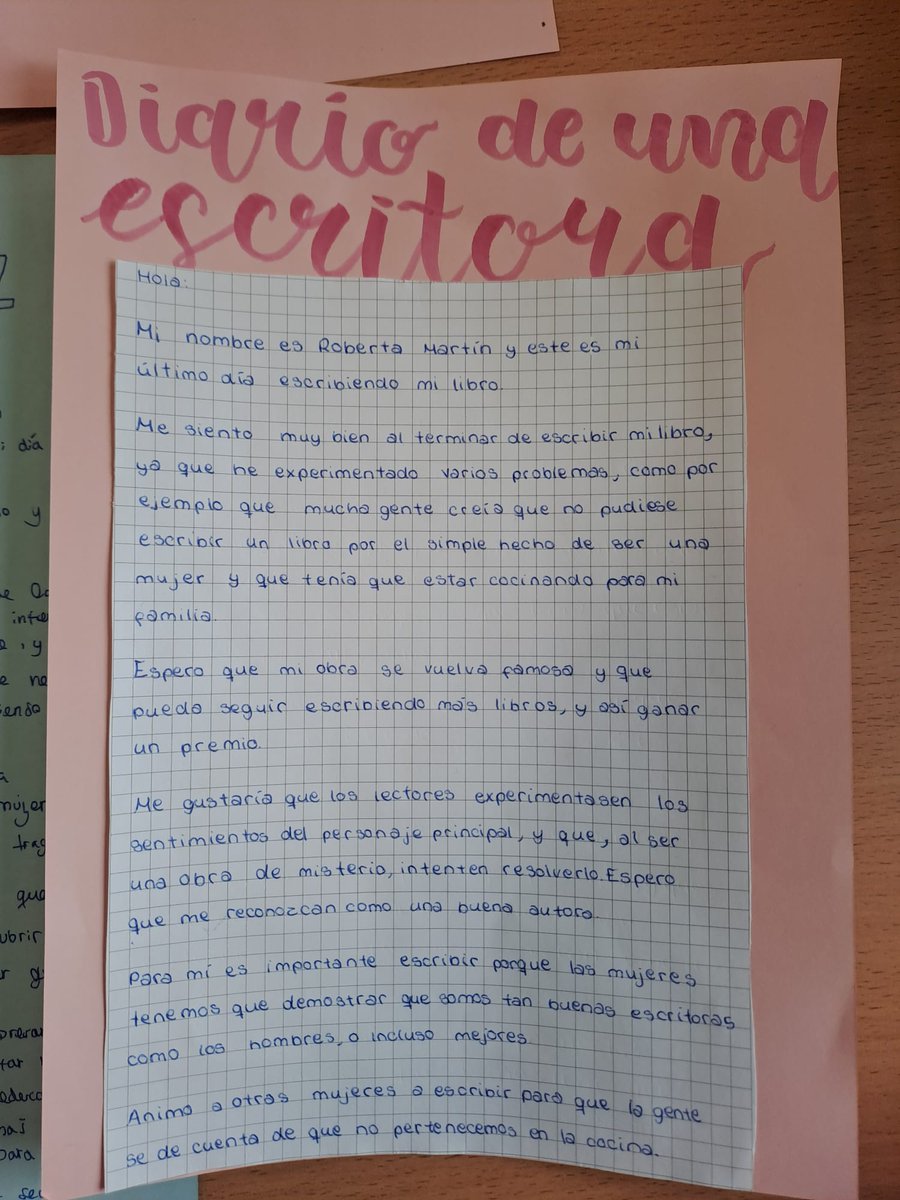 Diario de una
escritora
Hola:
Mi nombre es Roberta Martín y este es mi
último día escribiendo mi libro.
Me siento muy bien al terminar de escribir mi libro,
ya que he experimentado varios problemas, como por
ejemplo que mucha gente creía que no pudiese
escribir un libro por el simple hecho de ser una
mujer y que tenía que estar cocinando para mi
familia.
Espero que mi obra se vuelva famosa y que
pueda seguir escribiendo más libros, y así ganar
un premio.
Me gustaría que los lectores experimentasen los
sentimientos del personaje principal, y que, al ser
una obra de misterio, intenten resolverlo. Espero
que me reconozcan como una buena autora.
Para mí es importante escribir porque las mujeres
tenemos que demostrar que somos tan buenas escritoras
como los hombres, o incluso mejores.
Animo a otras mujeres a escribir para que la gente
se de cuenta de que no pertenecemos en la cocina.
día
y
y
mujer